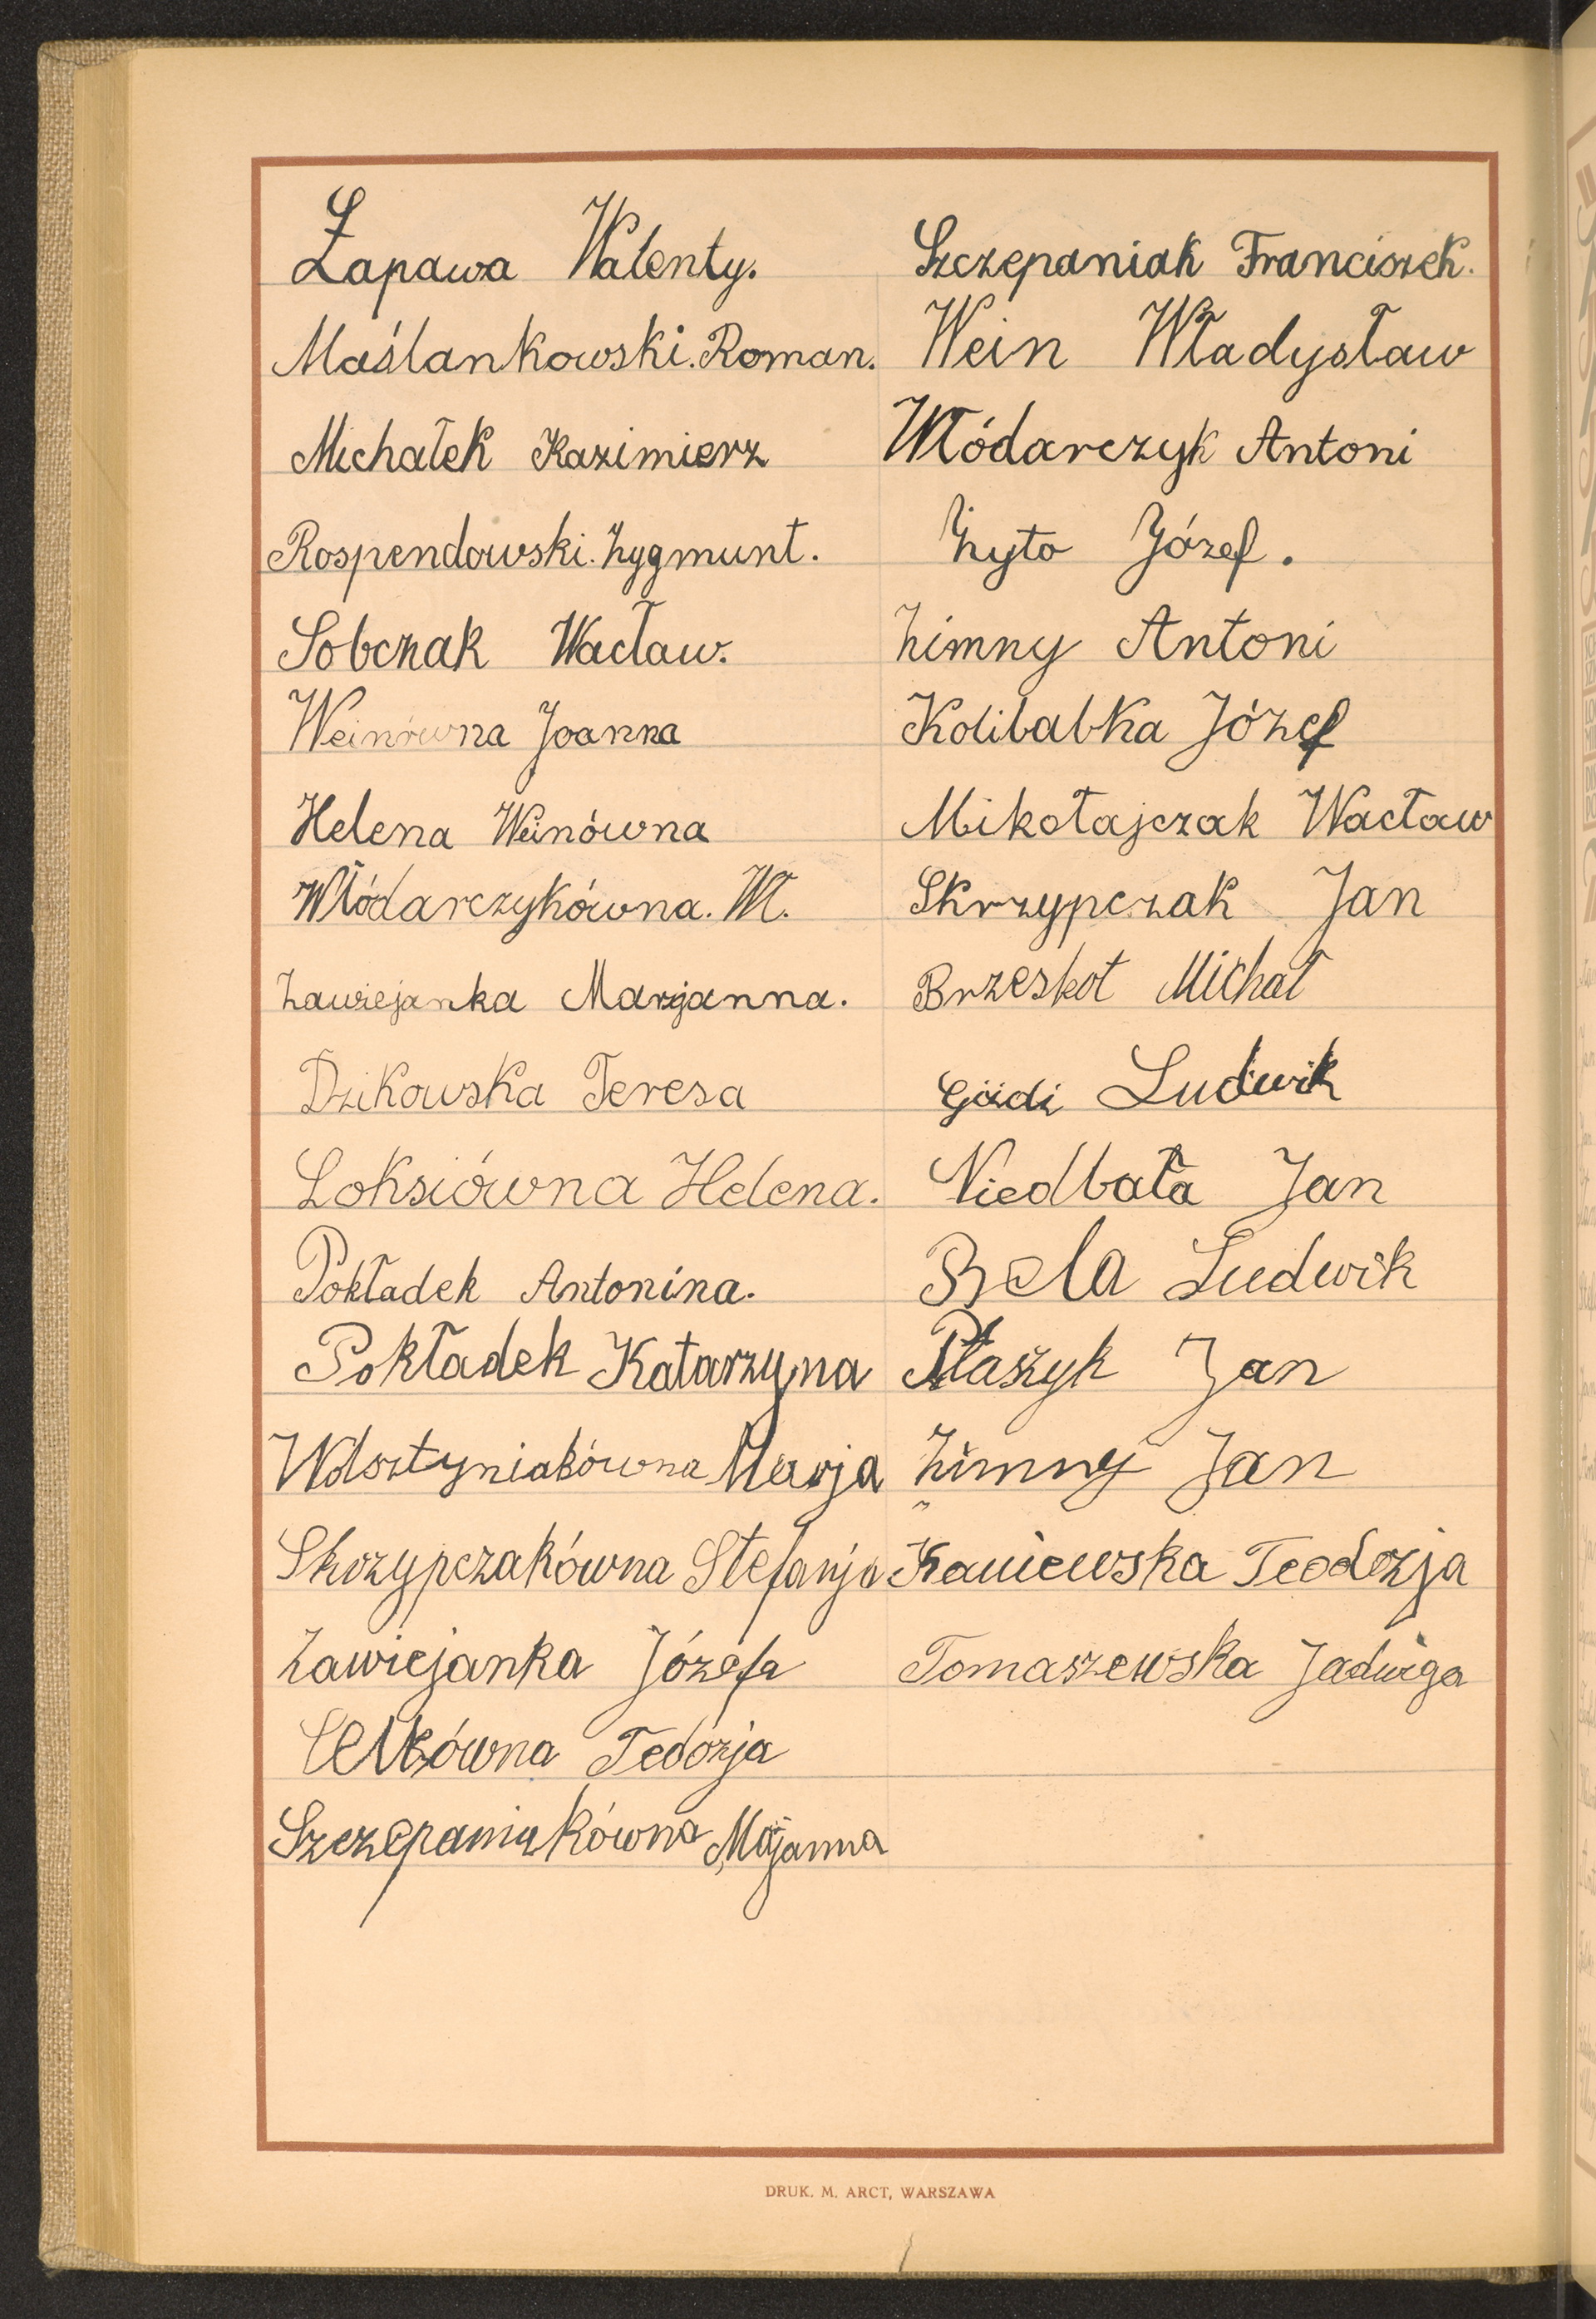 Łapawa Walenty.
Maślankowski. Roman.
Michałek Kazimierz
Rospendowski. Zygmunt.
Sobczak Wacław.
Weinówna Joanna
Helena Weinówna
Włódarczykówna. Wł.
Zawiejanka Marjanna.
Dzikowska Teresa
Loksiówna Helena.
Pokładek Antonina.
Pokładek Katarzyna
Wolsztyniakówna Marja
Skrzypczakówna Stefanja
Zawiejanka Józefa
Teodozja
Szczepaniakówna Majanna
Szczepaniak Franciszek.
Wein Władysław
Włódarczyk Antoni
Żyto Józef.
Zimny Antoni
Kolibabka Józef
Mikołajczak Wacław
Skrzypczak Jan
Brzeskot Michał
Ludwik
Niedbała Jan
Bzela Ludwik
Ptaszyk Jan
Zimny Jan
Kaniewska Teodozja
Tomaszewska Jadwiga
DRUK. M. ARCT, WARSZAWA